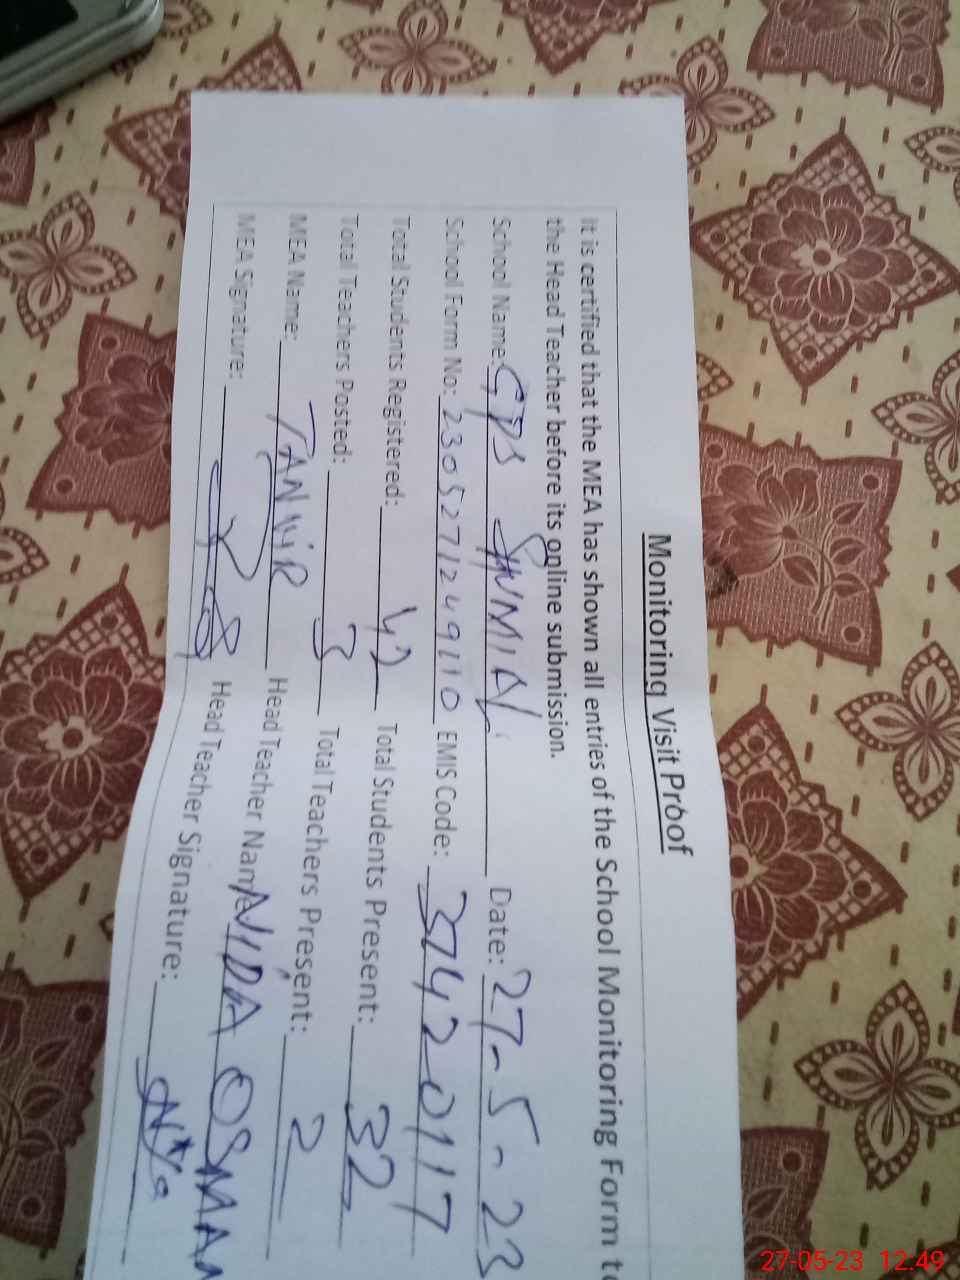 Monitoring Visit Proof
It is certified that the MEA has shown all entries of the School Monitoring Form to
the Head Teacher before its online submission.
School Name: GPS Date: 27-5-23
School Form No: EMIS Code: 37420117
Total Students Registered: 42 Total Students Present: 32
Total Teachers Posted: 3 Total Teachers Present: 2
MEA Name: TANVIR Head Teacher Name NIDA OSMAN
MEA Signature: Head Teacher Signature:
27-05-23 12:49